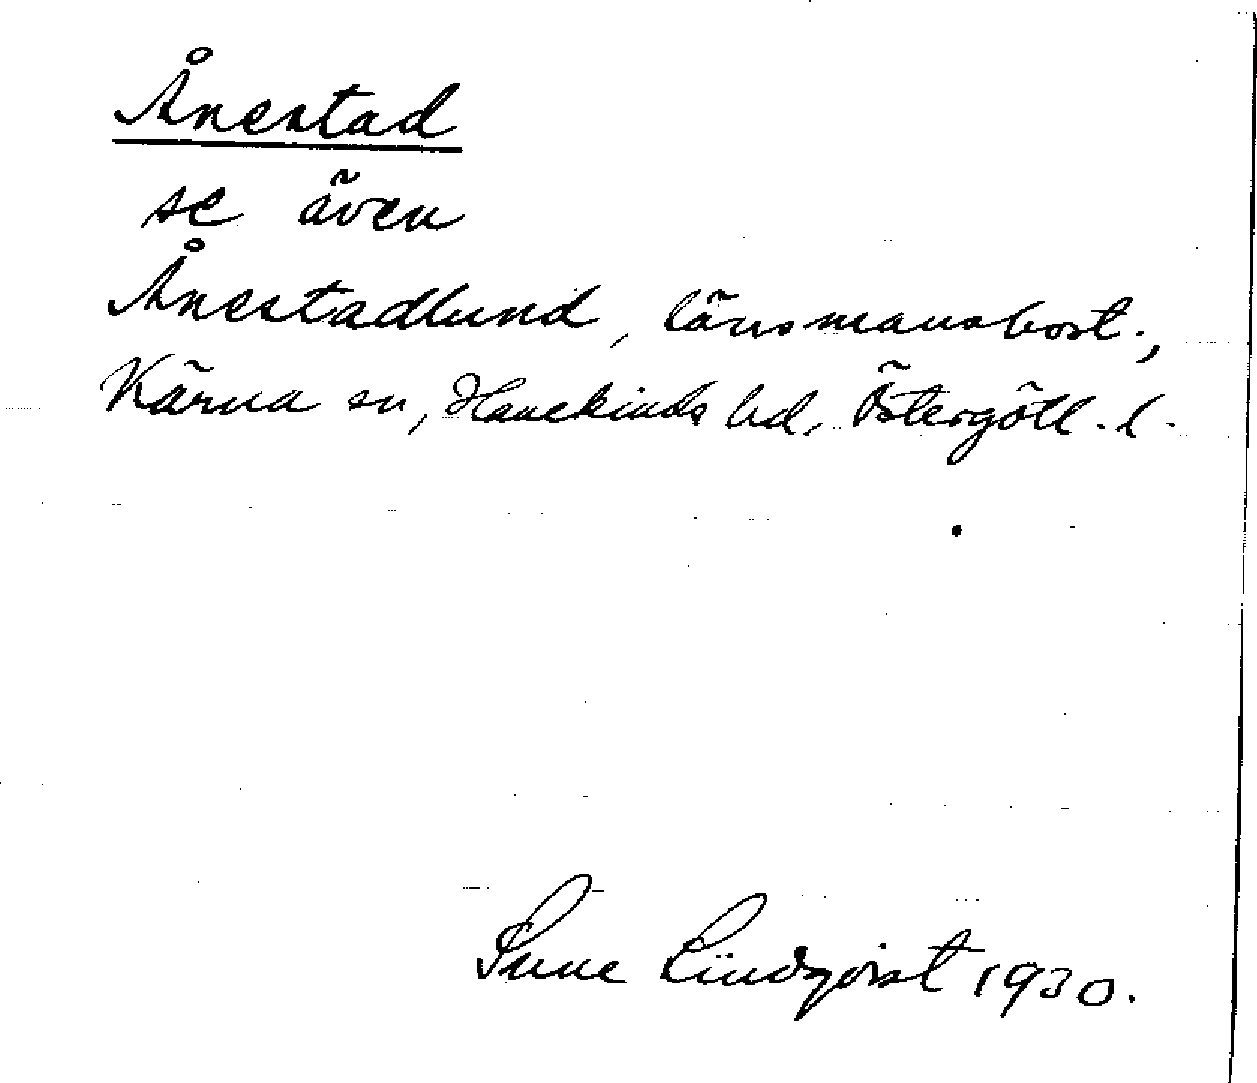 Ånestad
se även
Ånestadlund, länsmansbost.,
Kärna sn, Hanekinds hd, Östergötl. l.
Sune Lindqvist 1930.